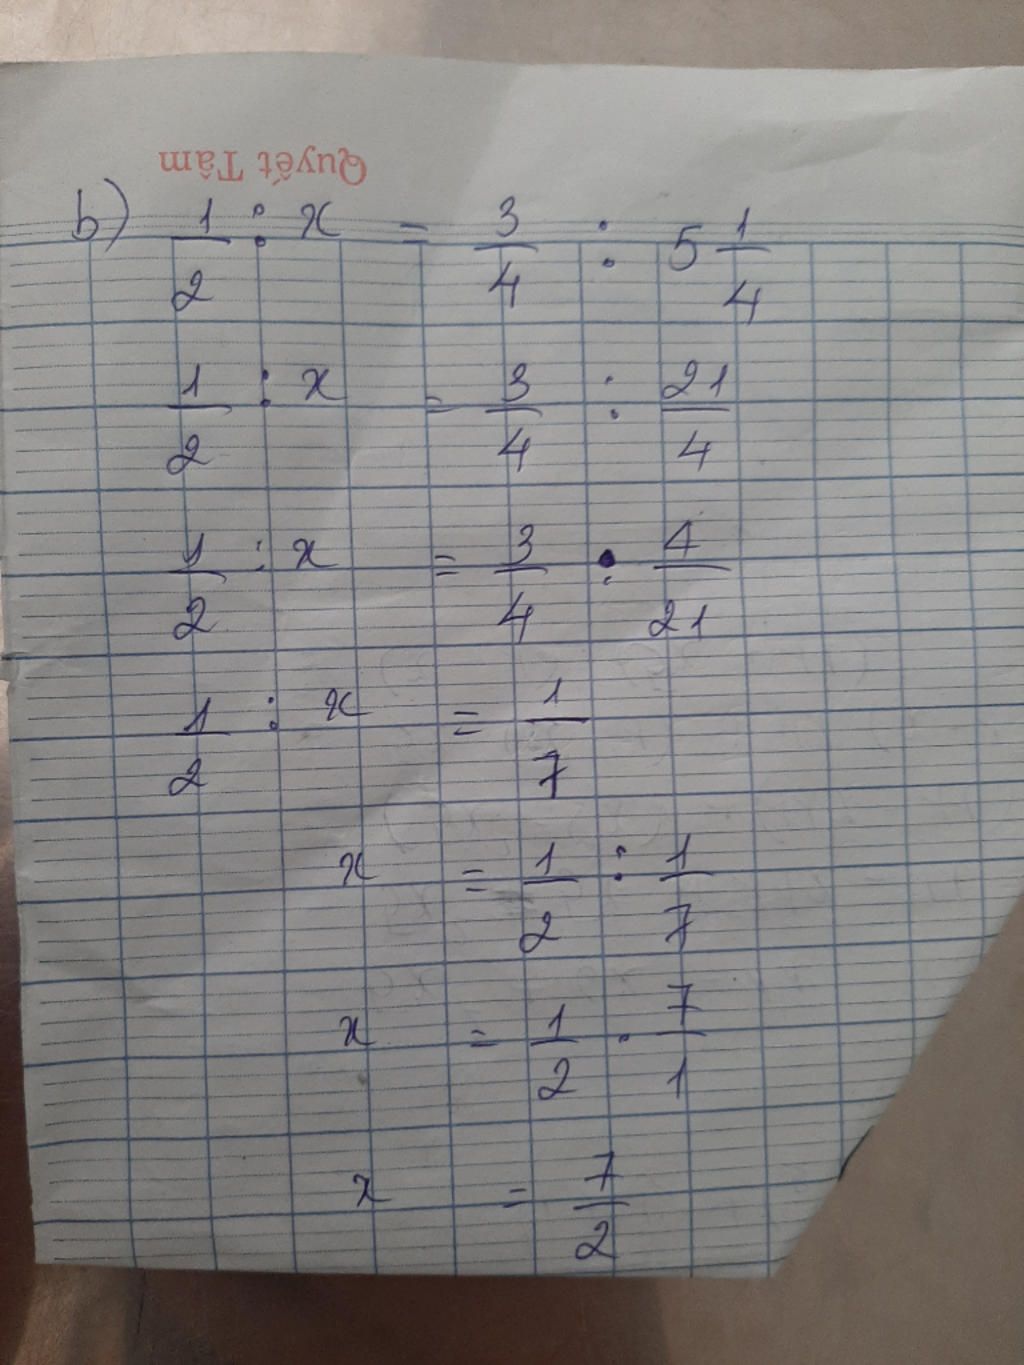 Quyết Tâm
b) 1/2 : x = 3/4 : 5 1/4
1/2 : x = 3/4 : 21/4
1/2 : x = 3/4 . 4/21
1/2 : x = 1/7
x = 1/2 : 1/7
x = 1/2 . 7/1
x = 7/2